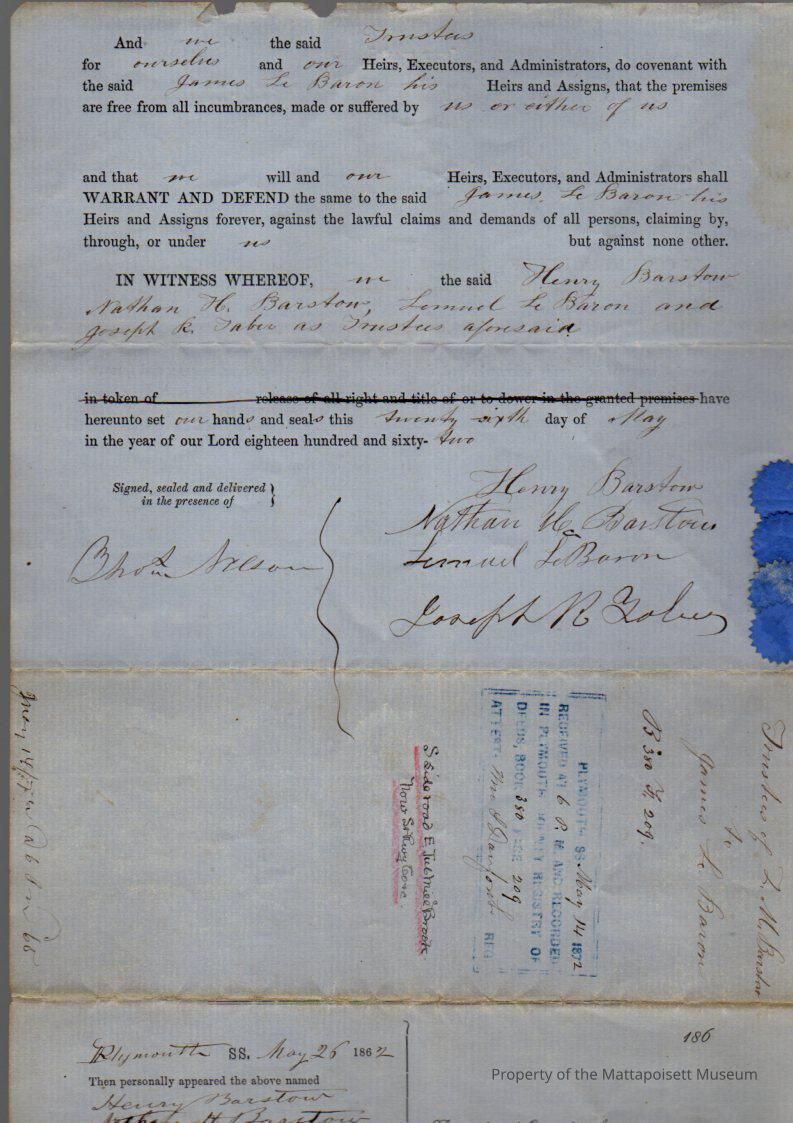 And we the said Trustees
for ourselves and our Heirs, Executors, and Administrators, do covenant with
the said James Le Baron his Heirs and Assigns, that the premises
are free from all incumbrances, made or suffered by us or either of us
and that we will and our Heirs, Executors, and Administrators shall
WARRANT AND DEFEND the same to the said James Le Baron his
Heirs and Assigns forever, against the lawful claims and demands of all persons, claiming by,
through, or under us but against none other.
IN WITNESS WHEREOF, we the said Henry Barstow
Nathan H. Barstow, Lemuel Le Baron and
Joseph R. Taber as Trustees aforesaid
in token of release of all right and title of or to dower in the granted premises have
hereunto set our hands and seals this twenty sixth day of May
in the year of our Lord eighteen hundred and sixty- two
Signed, sealed and delivered
in the presence of
Henry Barstow
Nathan H. Barstow
Lemuel LeBaron
Joseph R Taber
Nelson
Trustees of Barstow
to
James Le Baron
B 380 F. 209.
PLYMOUTH SS. May 14 1872
RECEIVED AT 6 P. M. AND RECORDED
IN PLYMOUTH COUNTY REGISTRY OF
DEEDS, BOOK 380 PAGE 209
ATTEST: Wm S Danforth REG
S side road E Tub Mill Brook
Now
Plymouth SS. May 26 1862
Then personally appeared the above named
Henry Barstow
Nathan H Barstow
186
Property of the Mattapoisett Museum